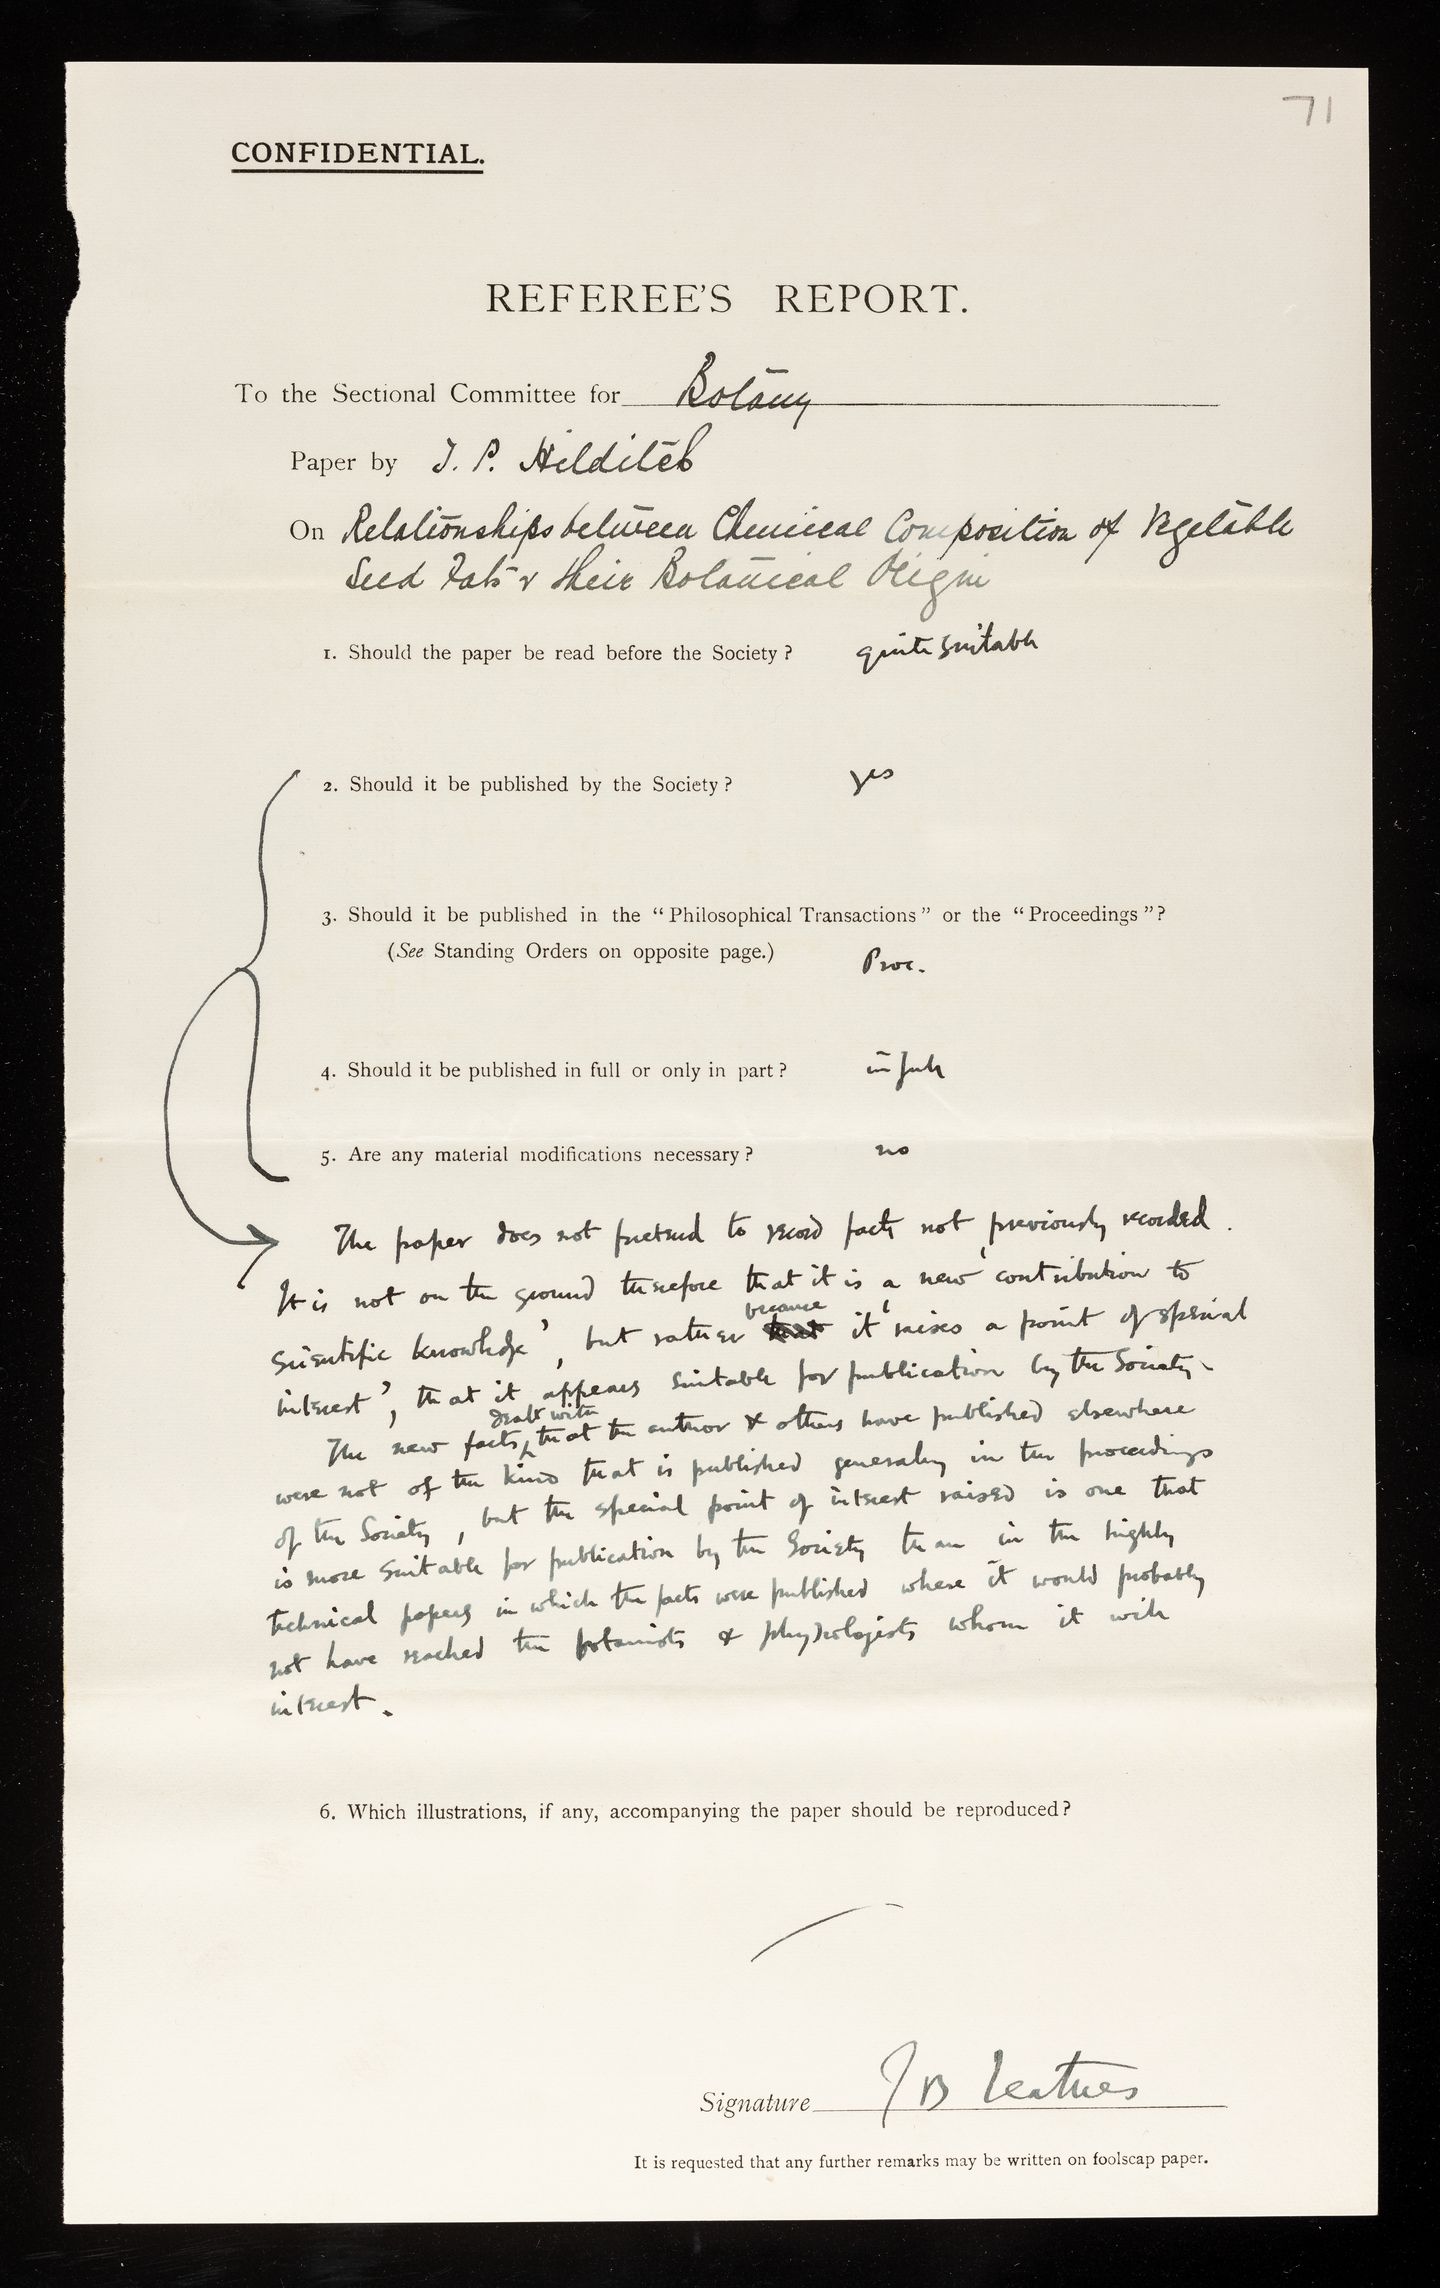 71
CONFIDENTIAL.
REFEREE'S REPORT.
To the Sectional Committee for Botany
Paper by T. P. Hilditch
On Relationships between Chemical Composition of Vegetable
Seed Fats & their Botanical Origin
1. Should the paper be read before the Society? quite suitable
2. Should it be published by the Society? yes
3. Should it be published in the "Philosophical Transactions" or the "Proceedings"?
(See Standing Orders on opposite page.) Proc.
4. Should it be published in full or only in part? in full
5. Are any material modifications necessary? no
The paper does not pretend to record facts not previously recorded.
It is not on the ground therefore that it is a 'new contribution to
because
scientific knowledge', but rather that it 'raises a point of special
interest', that it appears suitable for publication by the Society.
dealt with
The new facts that the author & others have published elsewhere
were not of the kind that is published generally in the proceedings
of the Society, but the special point of interest raised is one that
is more suitable for publication by the Society than in the highly
technical papers in which the facts were published where it would probably
not have reached the botanists & physiologists whom it will
interest.
6. Which illustrations, if any, accompanying the paper should be reproduced?
Signature J B Leathes
It is requested that any further remarks may be written on foolscap paper.